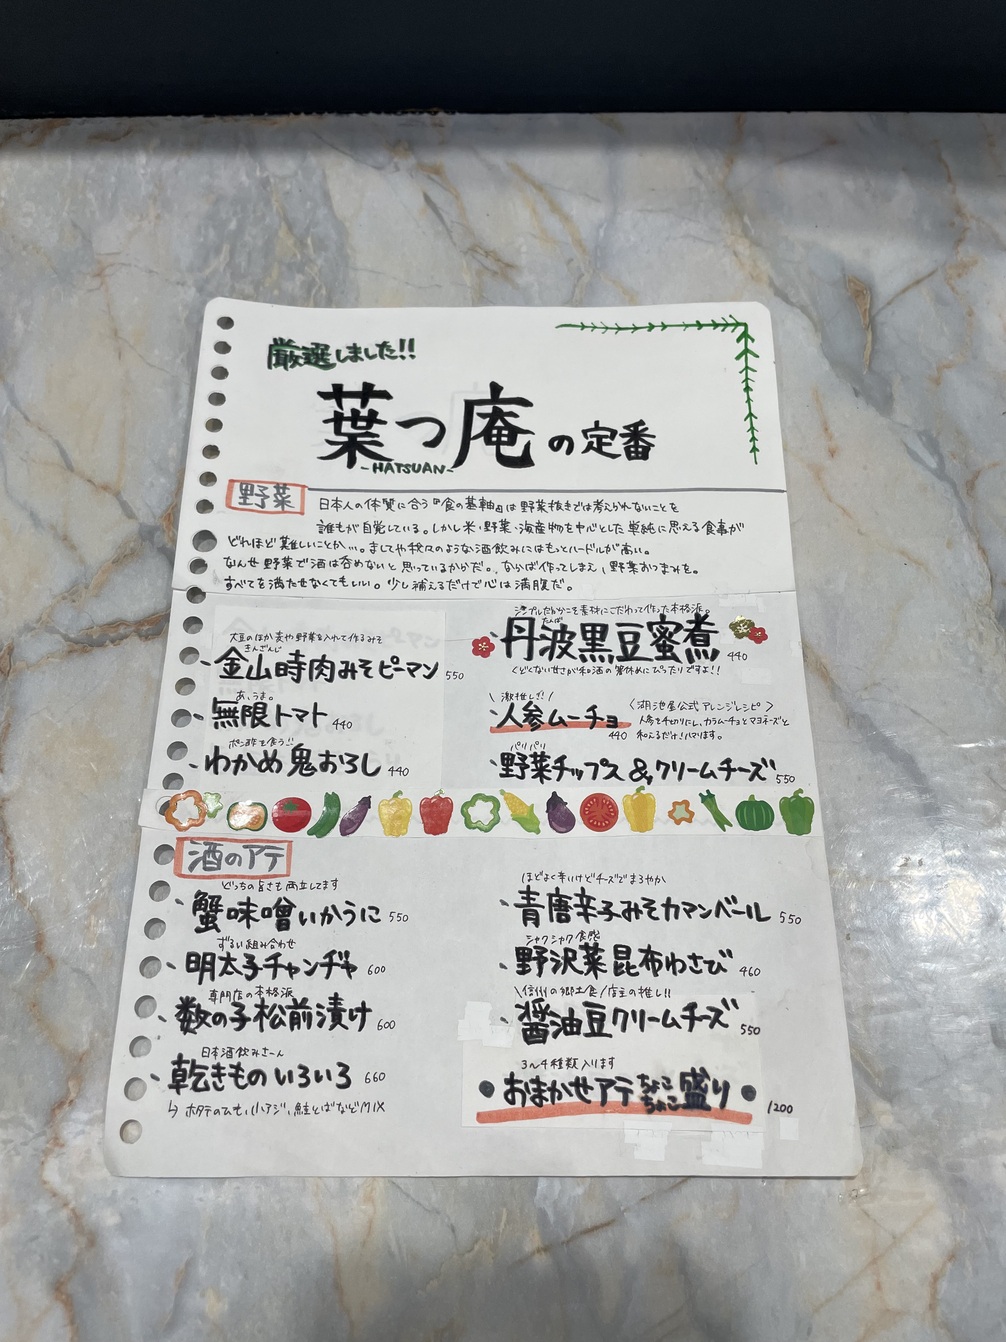 厳選しました!!
葉っ庵の定番
-HATSUAN-
野菜
日本人の体質に合う『食の基軸』は野菜抜きでは考えられないことを
誰もが自覚している。しかし米・野菜・海産物を中心とした単純に思える食事が
どれほど難しいことか…。ましてや我々のような酒飲みにはもっとハードルが高い。
なんせ野菜で酒は呑めないと思っているからだ。ならば作ってしまえ、野菜おつまみを。
すべてを満たせなくてもいい。少し補えるだけで心は満腹だ。
大豆のほか麦や野菜を入れて作るみそ
きんざんじ
金山時肉みそピーマン 550
あ、うま。
無限トマト 440
ポン酢で食う!!
わかめ鬼おろし 440
シンプルだからこそ素材にこだわって作った本格派。
たんば
丹波黒豆蜜煮 440
くどくない甘さが和酒の箸休めにぴったりですよ!!
\激推し!!/
人参ムーチョ 440
〈湖池屋公式アレンジレシピ〉
人参を千切りにし、カラムーチョとマヨネーズと
和えるだけ!ハマります。
パリパリ
野菜チップス&クリームチーズ 550
酒のアテ
どっちの旨さも両立してます
蟹味噌いかうに 550
ずるい組み合わせ
明太子チャンヂャ 600
専門店の本格派
数の子松前漬け 600
日本酒飲みさーん
乾きものいろいろ 660
↳ホタテのひも、小アジ、鮭とばなどMIX
ほどよく辛いけどチーズでまろやか
青唐辛子みそカマンベール 550
シャクシャク食感
野沢菜昆布わさび 460
\信州の郷土食/店主の推し!!
醤油豆クリームチーズ 550
3〜4種類入ります
●おまかせアテちょこちょこ盛り● 1200